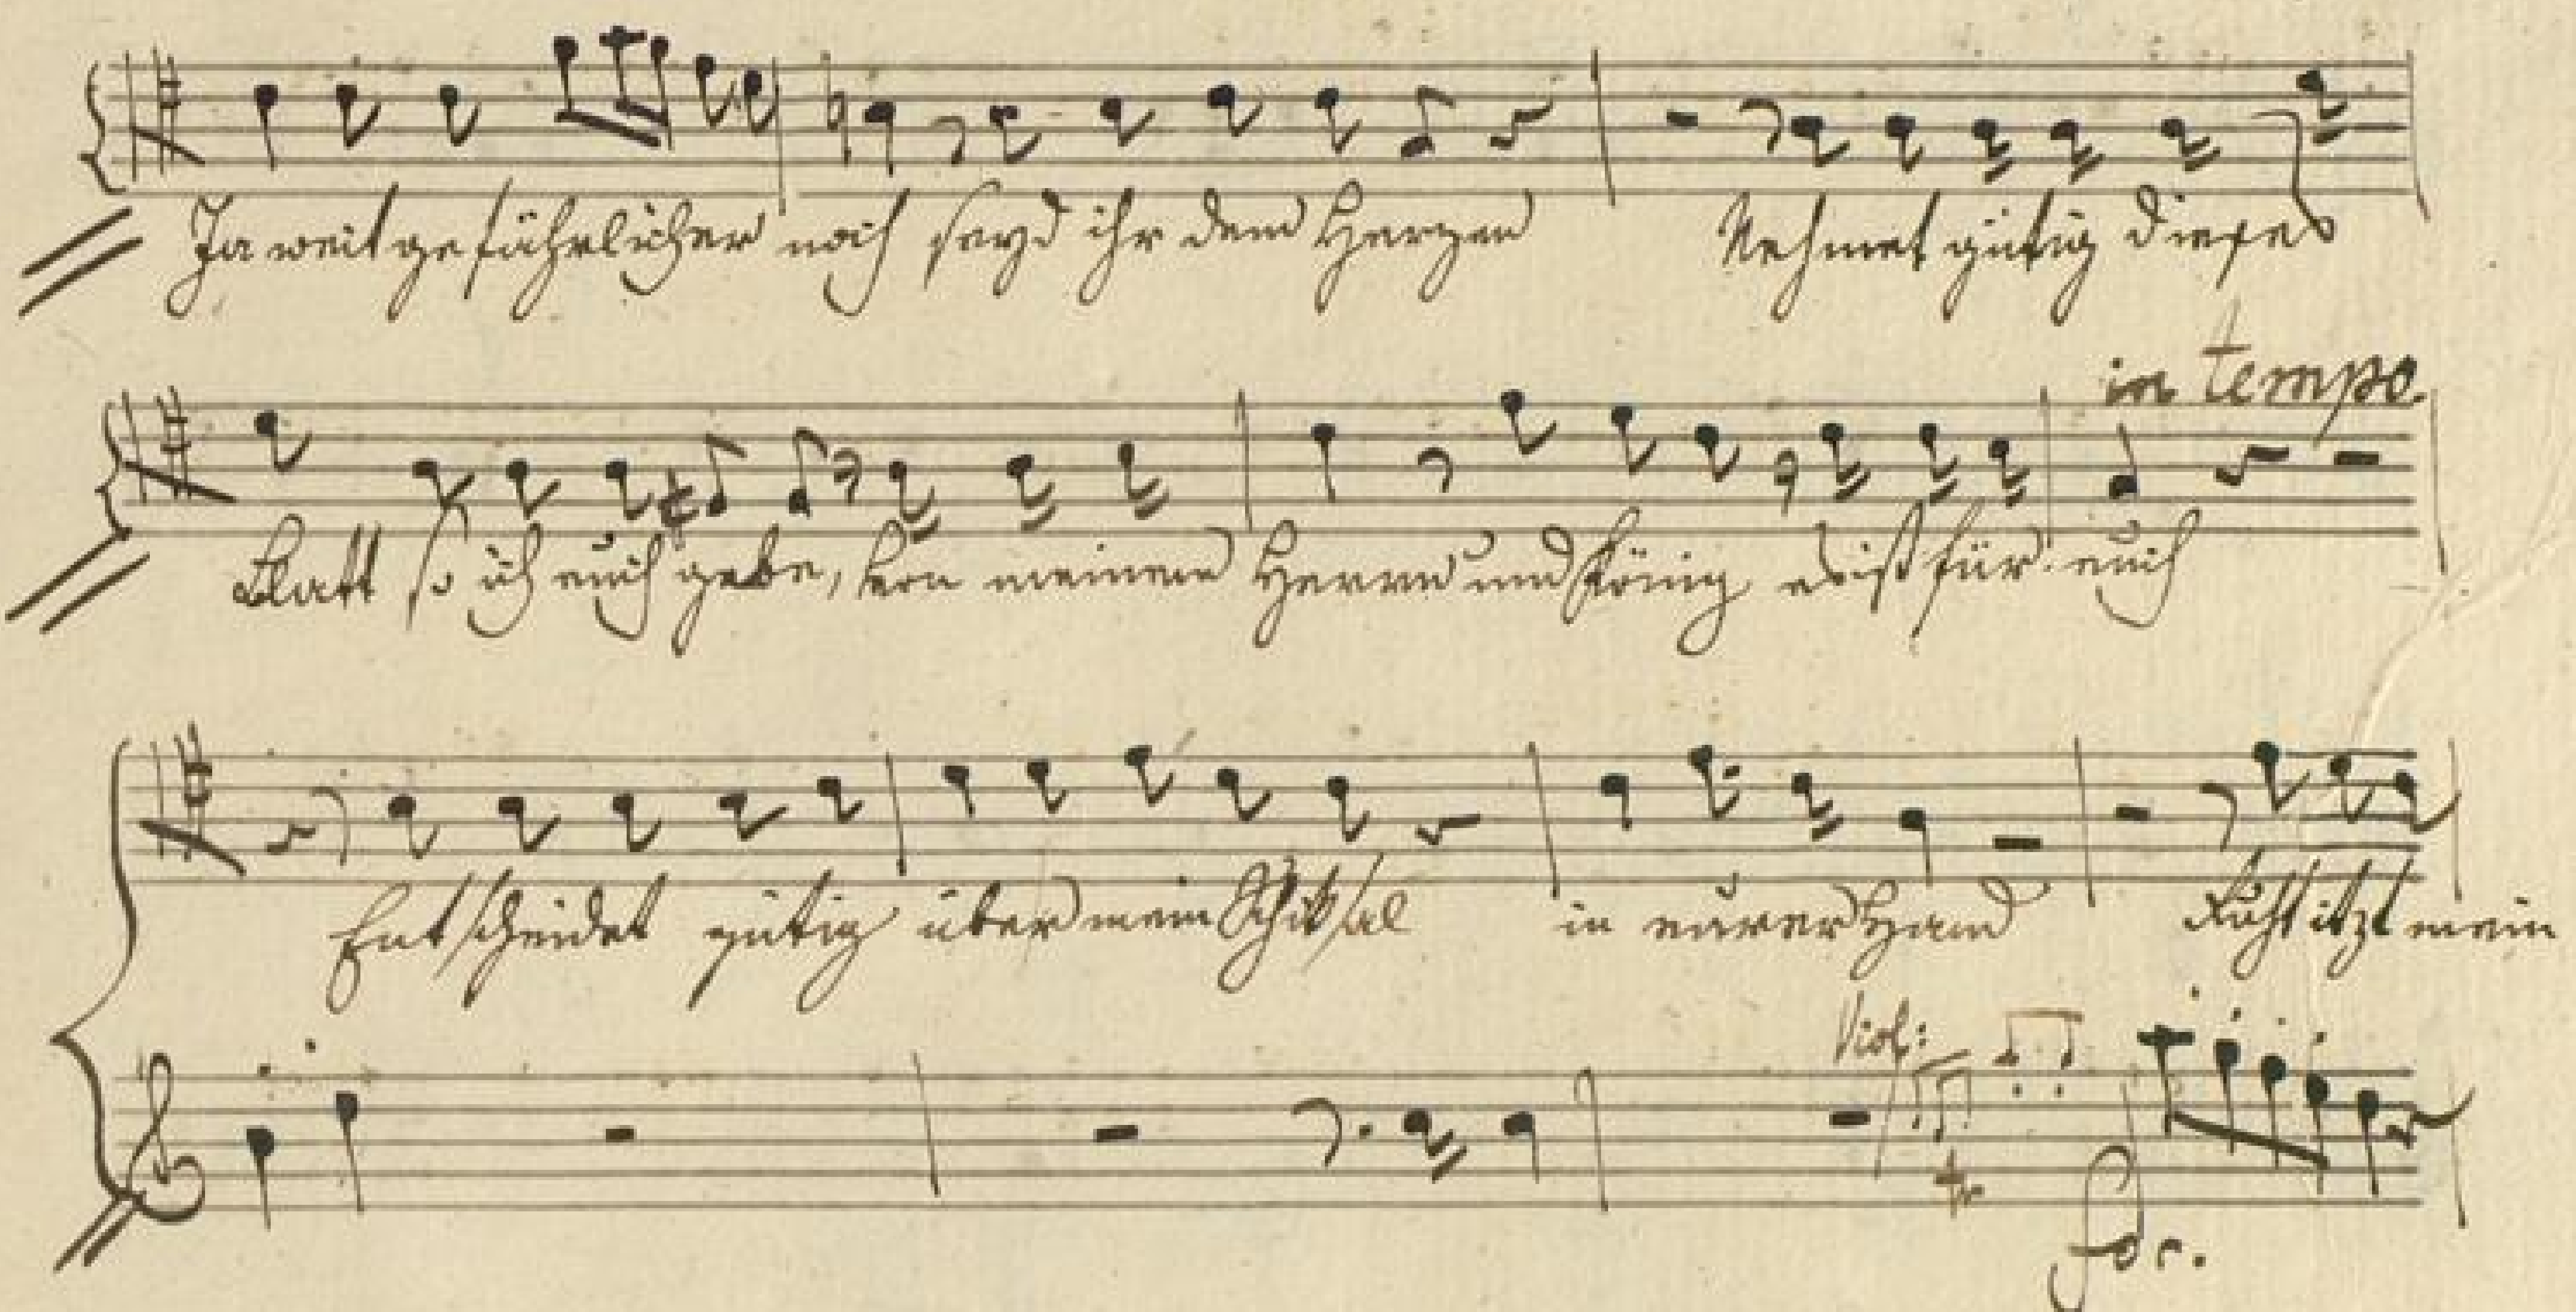 Ja weit gefährlicher noch seyd ihr dem Herzen Nehmet gütig dieses
in tempo.
Blatt so ich euch gebe, vom meinem Herrn und König ists für euch
Entscheidet gütig über mein Schiksal in eurer Hand Ruht itzt mein
Viol:
tr
for.